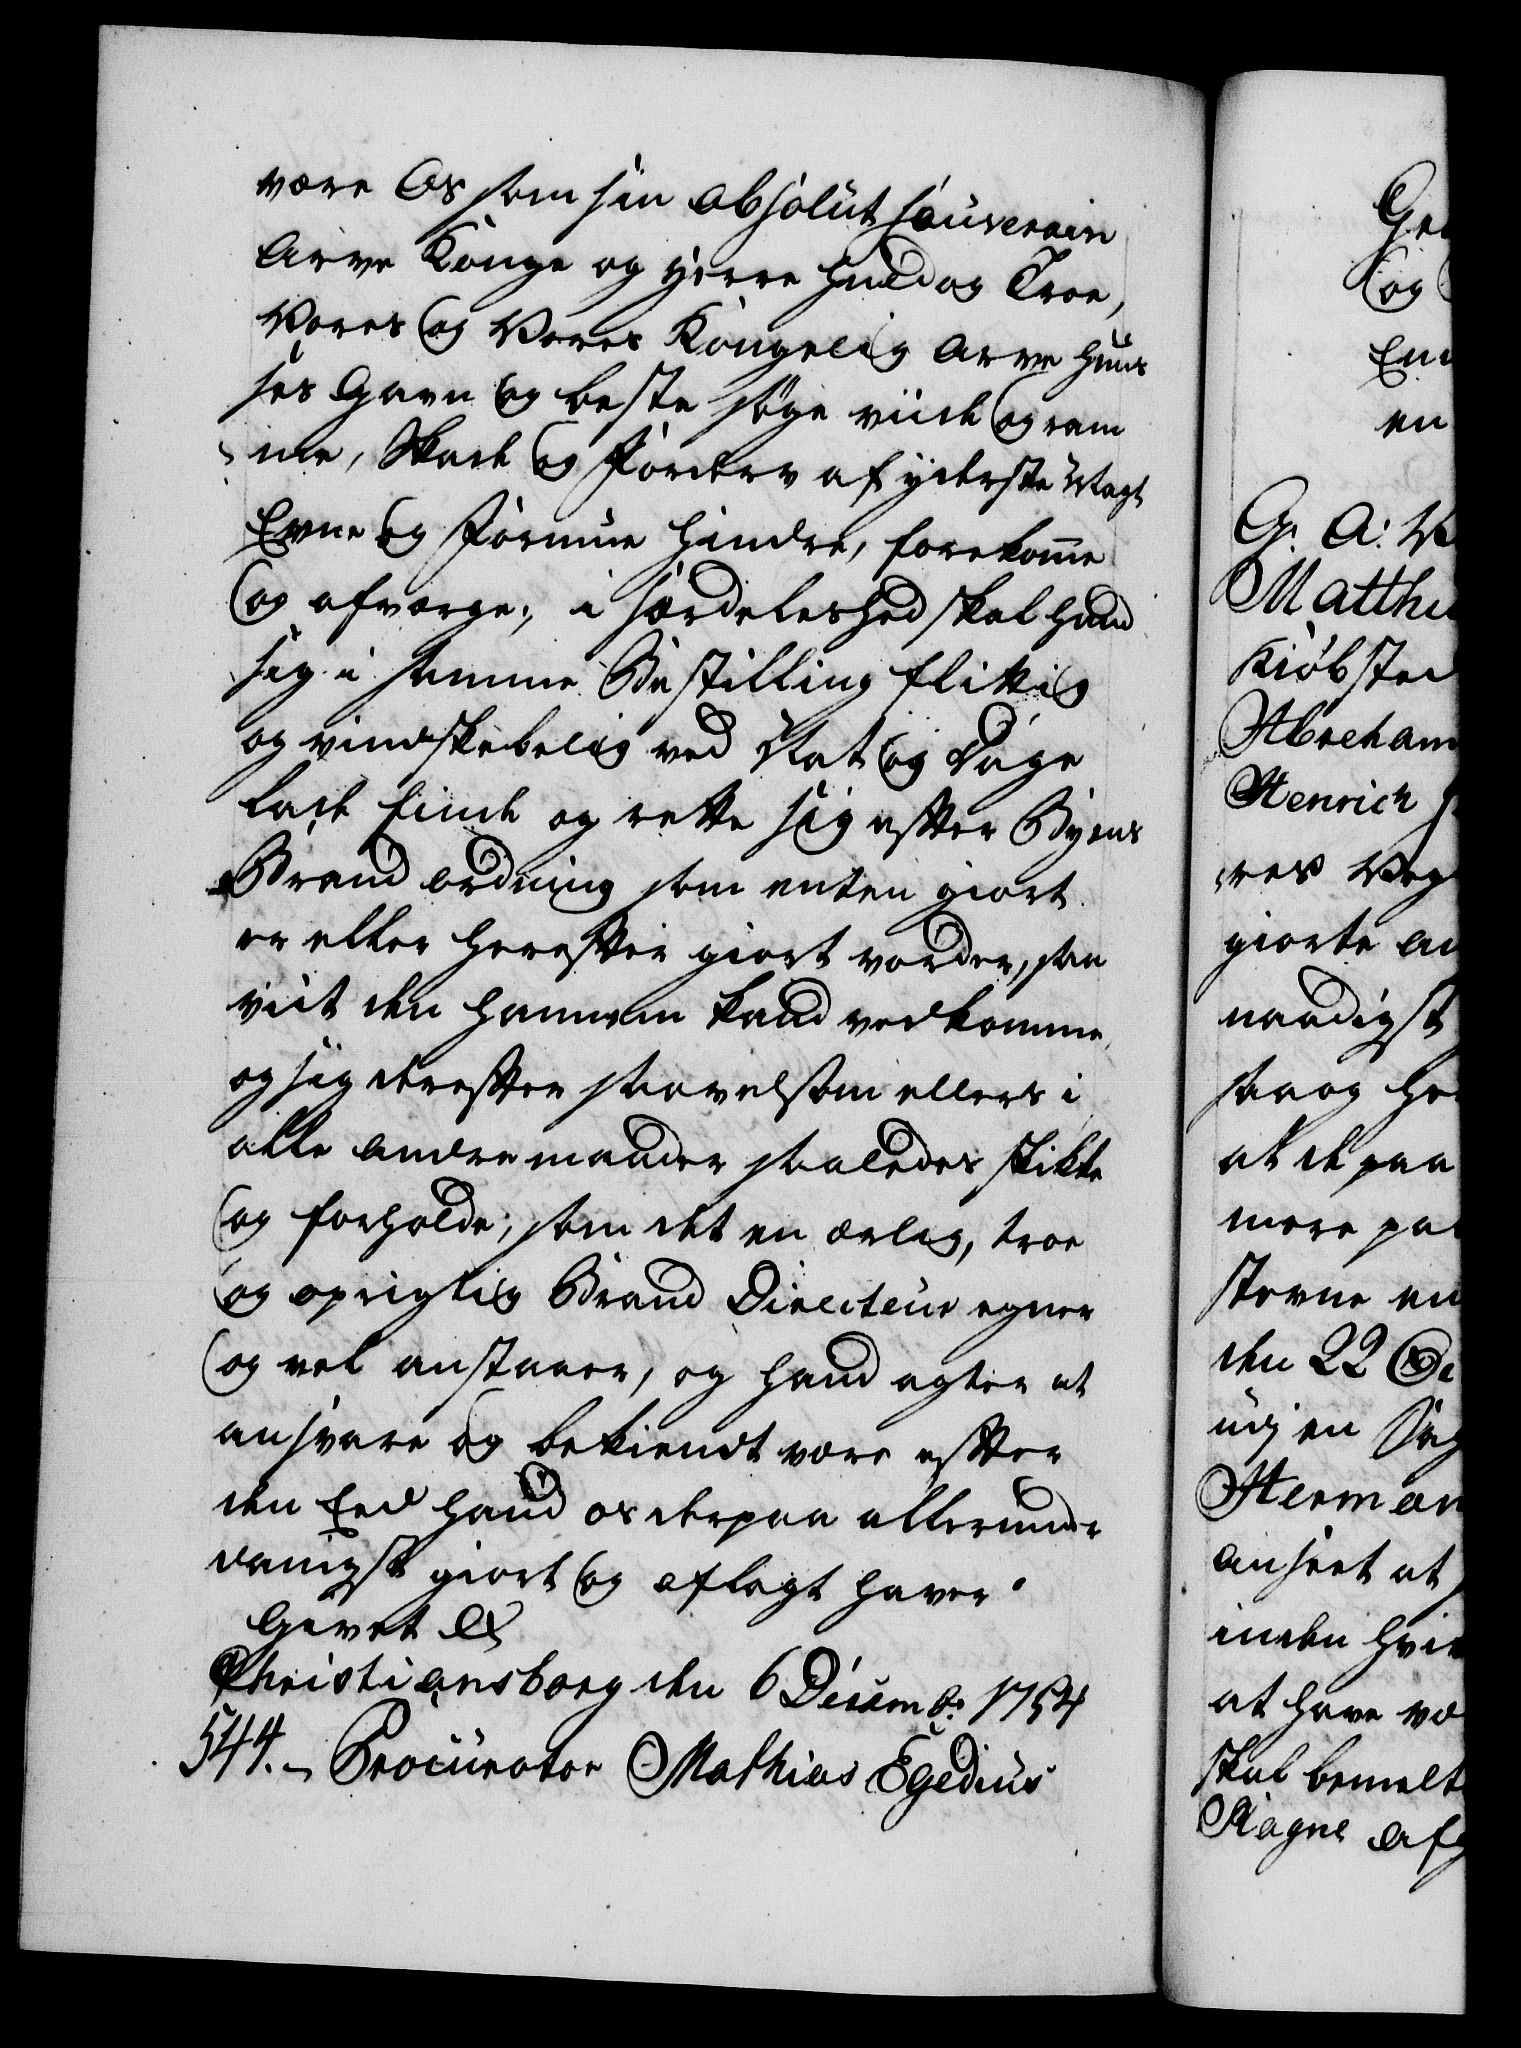 være Os som sin absolut souverain
Arve Konge og Herre huld og Troe,
Vores og Vores Kongelig Arve Huus
ses Gavn og beste søge viide og ram
me, Skade og Forderv af yderste Magt
Evne og Formue hindre, forekom̄e
og afværge; i særdeleshed skal hand
sig i samme Bestilling flikig
og vindskebelig ved Nat og Dage
lade finde og rette sig efter Byens
Brand ordning som enten giort
er eller herefter giort vorder, saa
viit den hannem kand vedkomme,
og sig derefter saavelsom ellers i
alle andre maader saaledes skikke
og forholde; som det en ærlig, troe
og oprigtig Brand Directeur egner
og vel anstaaer, og hand agter at
ansvare og bekiendt være efter
den Eed hand os derpaa allerunder
danigst giort og aflagt haver.
Givet &
Christiansborg den 6 Decembr: 1754
544. Procurator Mathias Egedius
Ge
og
En
en
G: A: V
Matthi
Kiøbsted
Abraham
Henrich
res Veg
giorte an
naadigst
saa og he
at de paa
mere pa
stevne en
den 22 De
udj en Sag
Herman
anseet at
inden hvi
at have væ
skal bemelt
Aagne afg